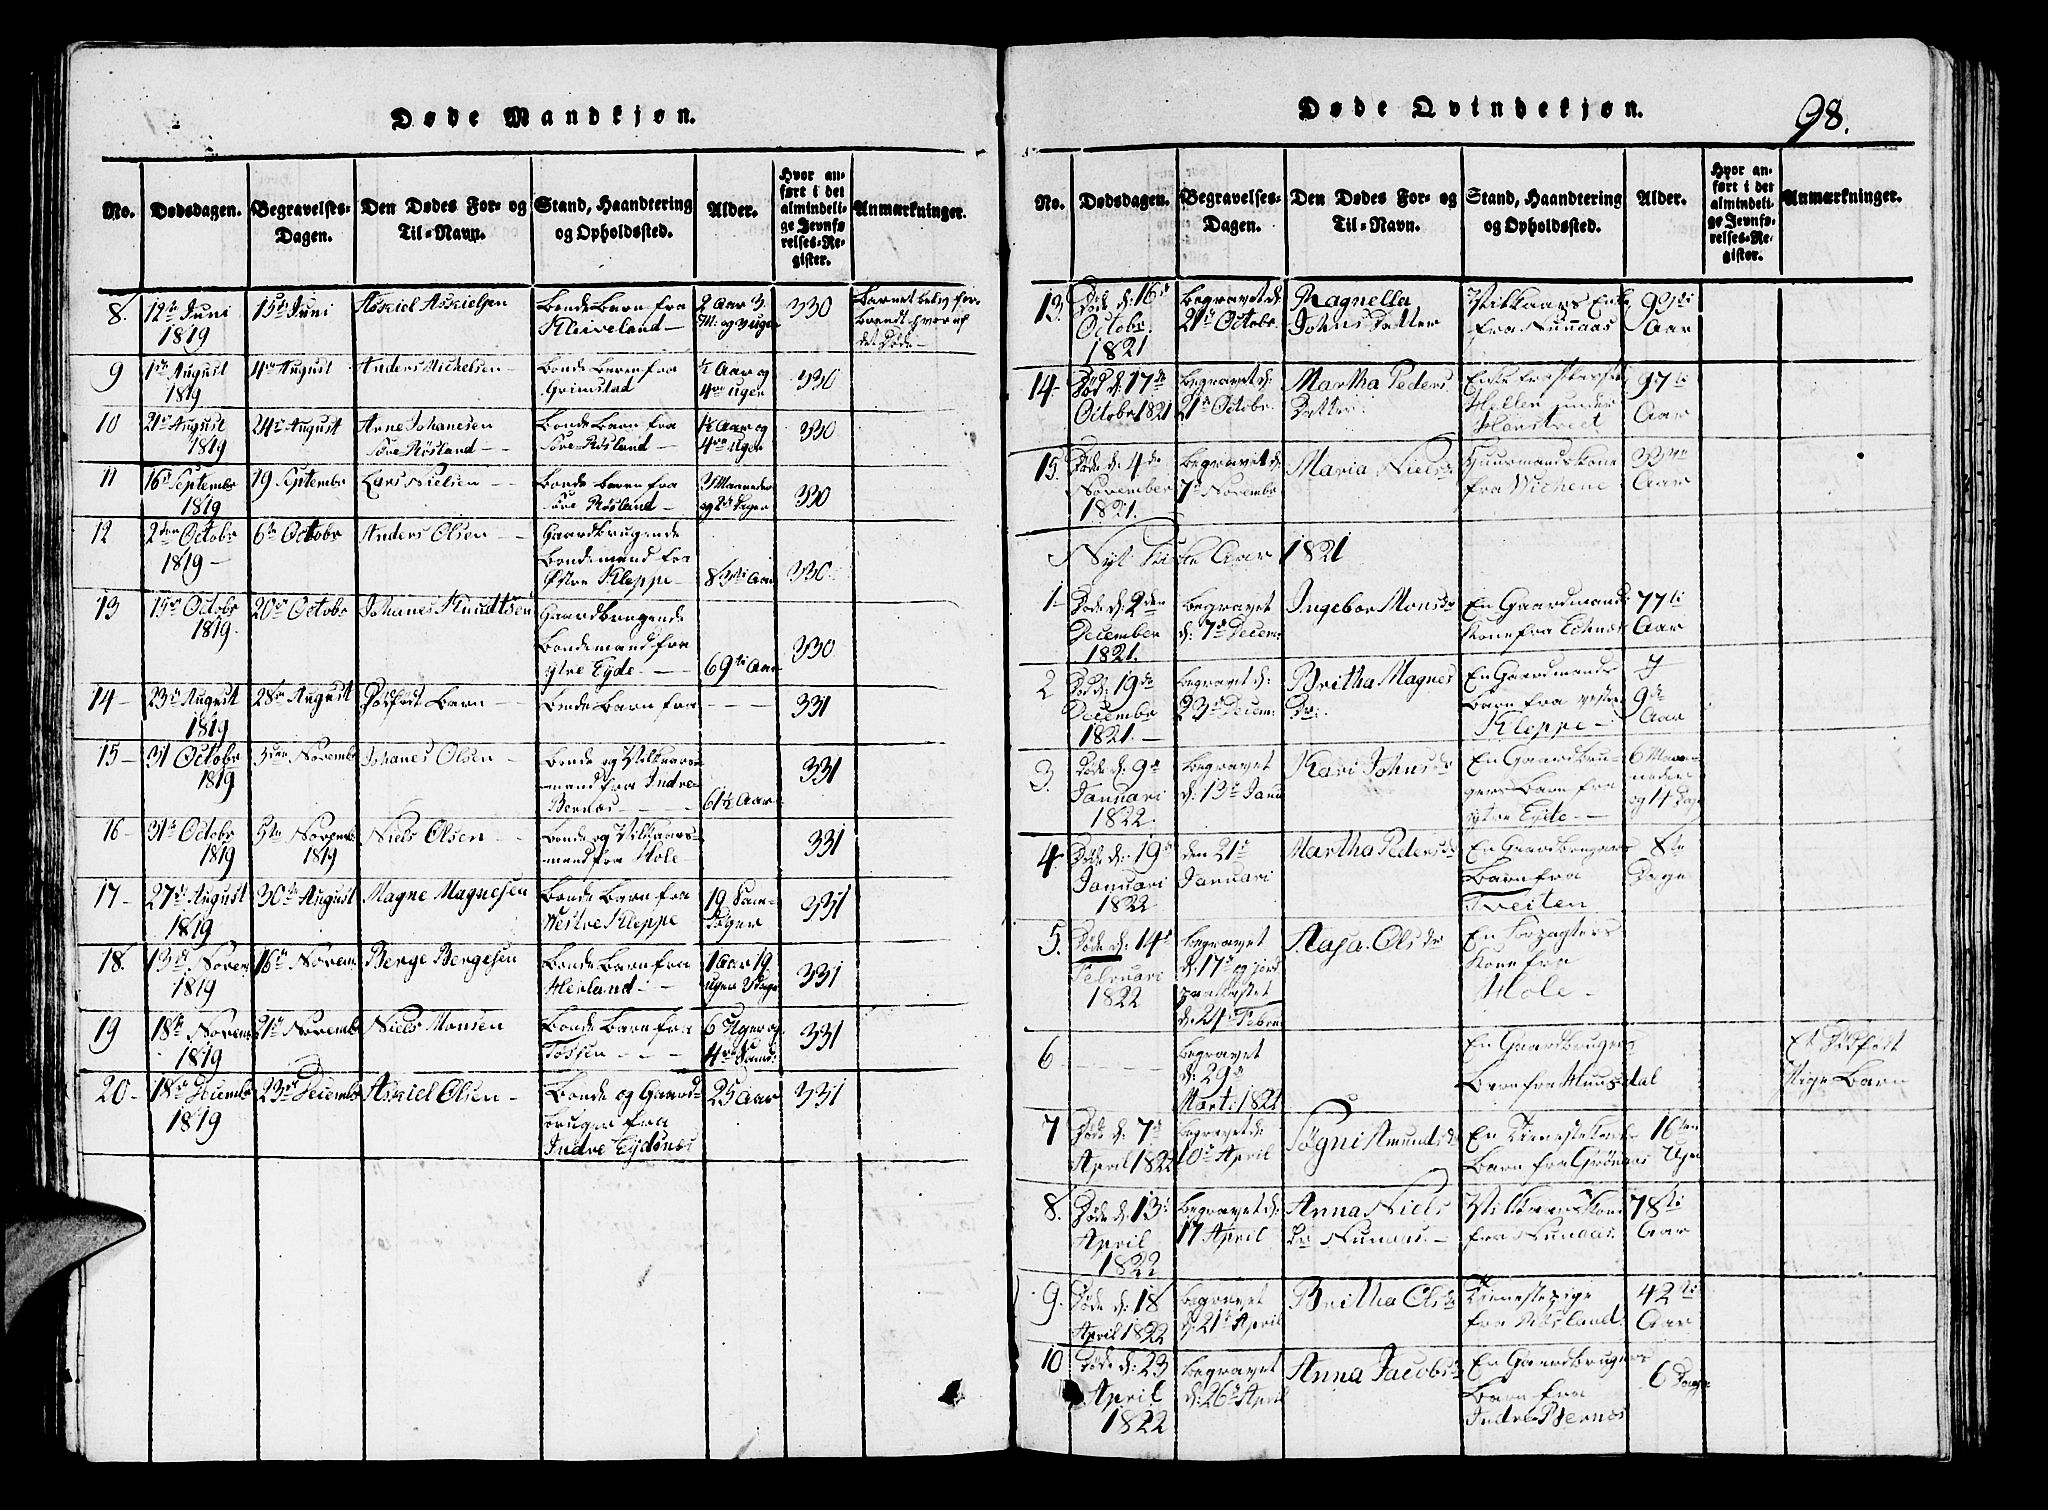 Døde Mandkjøn.
No. Dødsdagen. Begravelses-Dagen. Den Dødes For- og Til-Navn. Stand, Haandtering og Opholdssted. Alder. Hvor anført i det almindelige Jevnførelses-Register. Anmærkninger.
8. 12te Juni 1819 15de Juni Askiel Askielsen Bonde Barn fra Kleiveland 2 Aar 3 M: og uger 330 Barnet blev forbrændt hvoraf det Døde
9 1ste August 1819 4de August Anders Michelsen Bonde Barn fra Grimstad ½ Aar og 4re uger 330
10 21de August 1819 24de August Arne Johanesen Søre Røsland Bonde Barn fra Søre Røsland 1½ Aar og 4re uger 330
11 16de Septembr 1819 19 Septembr Lars Nielsen Bonde Barn fra Søre Røsland 3 Maaneder og Dager 330
12 2den Octobr 1819 6te Octobr Anders Olsen Gaardbrugende Bondemand fra Østre Kleppe 83 Aar 330
13 15de Octobr 1819 20de Octobr Johanes Knudtsen Gaardbrugende Bondemand fra ytre Eyde 69 Aar 330
14 23de August 1819 28de August Dødfødt Barn Bonde Barn fra 331
15 31 Octobr 1819 3die Novembr Johanes Olsen Bonde og Vilkaarsmand fra Indre Bernæs 61½ Aar 331
16 31te Octobr 1819 5te Novembr 1819 Niels Olsen Bonde og Vilkaarsmand fra Hole 331
17 27de August 1819 30te August Magne Magnesen Bonde Barn fra Westre Kleppe 19 Samdøger 331
18. 13de Novem 1819 16de Novem Berge Bergesen Bonde Barn fra Hevland 1 Aar 19 uger Dage 331
19 18de Novem 1819 21de Novemb Niels Monsen Bonde Barn fra Tøssen 6 Uger og 4re Samd: 331
20 18de Decembr 1819 23de Decembr Askiel Olsen Bonde og Gaardbruger fra Indre Eydsnæs 25 Aar 331
Døde Qvindekjøn. 98.
No. Dødsdagen. Begravelses-Dagen. Den Dødes For- og Til-Navn. Stand, Haandtering og Opholdssted. Alder. Hvor anført i det almindelige Jevnførelses-Register. Anmærkninger.
13. Døde d: 16de Octobr. 1821 begravet d: 21de Octobr. Ragnella Johns Datter Vilkaars Enke fra Nunaas 93 Aar
14 Død d: 17de Octobr 1821 begravet d: 21de Octobr. Martha Peders Datter Enke fra Hellen under Henstveet 97 Aar
15. Døde d: 4de November 1821. begravet d: 7de Novembr Maria Nielsdr Huusmands Kone fra Wichene Aar
Nyt Kirke Aar 1821
1 Døde d: 2den December 1821. begravet d: 7de Decem: Ingebor Monsdr En Gaardmands Kone fra Echnæs 77 Aar
2 Død d: 19de Decembr 1821. begravet d: 23de Decem: Britha Magnes Dr. En Gaardmands Barn fra vestre Kleppe 9de Aar
3. Døde d: 9de Januari 1822. begravet d: 13de Janu Kari Johnsdr En Gaardbrugers Barn fra ytre Eyde 6 Maaneder og 14 Dage
4 Døde d: 19de Januari 1822 den 21de Januari Martha Pedersdr En Gaardbrugers Barn fra Tveiten 8te Dage
5. Døde d: 14de Februari 1822 begravet d: 17de og jord paakastet d: 24de Febru Aasa Olsdr En Forpagters Kone fra Hole
6 begravet d: 29de Marts: 1822 En Gaardbrugers Barn fra Huusdal Et Dødfødt Pige Barn
7 Døde d: 7de April 1822 begravet d: 10de April Søgni Amundsdr En Tieneste Barn fra Grønaas 16ten Uger
8. Døde d: 13de April 1822 begravet d: 17 April Anna Niels Dr Nunaas. Vilkaars Kone fra Nunaas. 78 Aar
9. Døde d: 18 April 1822 begravet d: 21de April Britha Olsdr Tienestepige fra Røsland. 42 Aar
10 Døde d: 23 April 1822 begravet d: 26de April Anna Jacobsdr En Gaardbrugers Barn fra Indre Bernæs 6 Dage